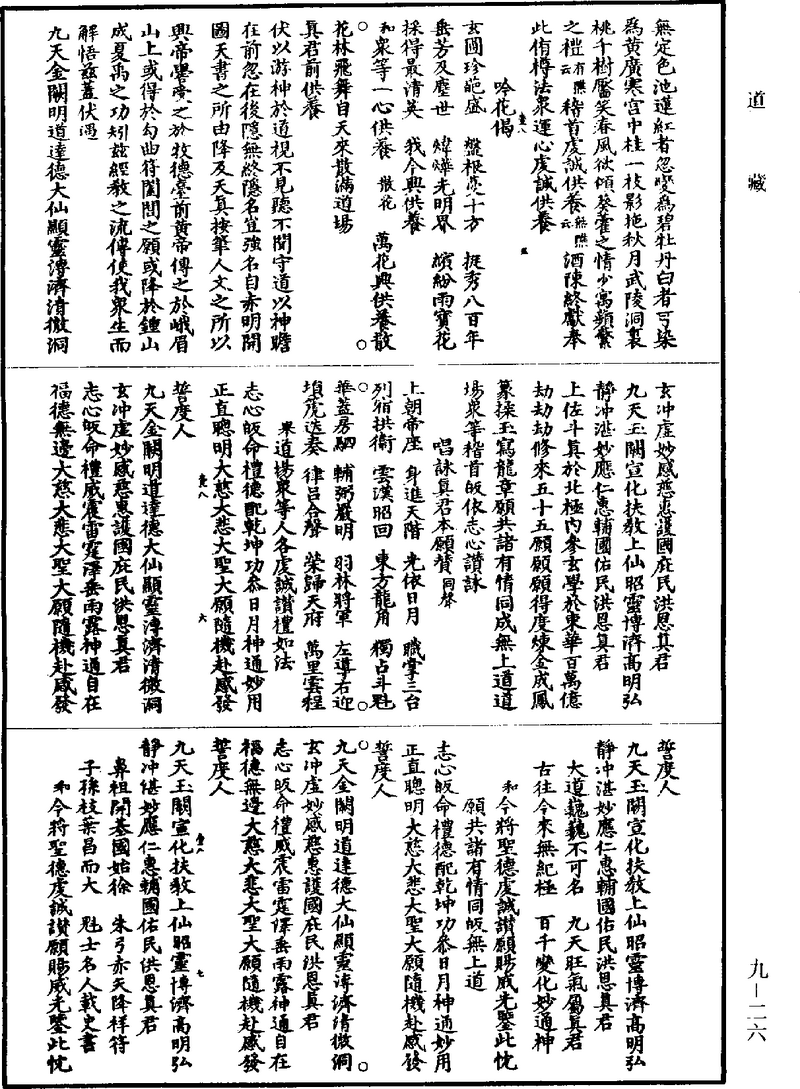 道藏
無定色池蓮紅者忽變為碧牡丹白者弓染
為黃廣寒宮中桂一枝影拖秋月武陵洞裏
桃千樹靨笑春風欲傾葵藿之情少寓蘋蘩
之禮云有醮稽首虔誠供養云無醮酒陳終獻奉
此侑樽法眾運心虔誠供養
吟花偈
玄圃珍葩盛 盤根滿十方 挺秀八百年
垂芳及塵世 煒燁光明界 繽紛雨寶花
採得最清英 我今興供養
和眾等一心供養 散花 萬花興供養散
花林飛舞自天來散滿道場
真君前供養
伏以游神於道視不見聽不聞守道以神瞻
在前忽在後隱無終隱名豈強名自赤明開
圖天書之所由降及天真按筆人文之所以
興帝嚳受之於牧德臺前黃帝傳之於峨眉
山上或得於勾曲符闔閭之願或降於鍾山
成夏禹之功矧茲經教之流傳使我眾生而
解悟茲蓋伏遇
九天金闕明道達德大仙顯靈溥濟清微洞
玄冲虛妙感慈惠護國庇民洪恩真君
九天玉闕宣化扶教上仙昭靈博濟高明弘
靜冲湛妙應仁惠輔國佑民洪恩真君
上佐斗真於北極內參玄學於東華百萬億
劫劫劫修來五十五願願願得度煉金成鳳
篆揉玉寫龍章願共諸有情同成無上道道
場眾等稽首皈依志心讚詠
唱詠真君本願讚同聲
上朝帝座 身進天階 光依日月 職掌三台
列宿拱衛 雲漢昭回 東方龍角 獨占斗魁
華蓋房駟 輔弼嚴明 羽林將軍 左導右迎
塤篪迭奏 律呂合聲 榮歸天府 萬里雲程
眾道場眾等人各虔誠讚禮如法
志心皈命禮德配乾坤功叅日月神通妙用
正直聰明大慈大悲大聖大願隨機赴感發
誓度人
九天金闕明道達德大仙顯靈溥濟清微洞
玄冲虛妙感慈惠護國庇民洪恩真君
志心皈命禮威震雷霆澤垂雨露神通自在
福德無邊大慈大悲大聖大願隨機赴感發
誓度人
九天玉闕宣化扶教上仙昭靈博濟高明弘
靜冲湛妙應仁惠輔國佑民洪恩真君
大道巍巍不可名 九天旺氣屬真君
古往今來無紀極 百千變化妙通神
和今將聖德虔誠讚願賜威光鑒此忱
願共諸有情同皈無上道
志心皈命禮德配乾坤功叅日月神通妙用
正直聰明大慈大悲大聖大願隨機赴感發
誓度人
九天金闕明道達德大仙顯靈溥濟清微洞
玄冲虛妙感慈惠護國庇民洪恩真君
志心皈命禮威震雷霆澤垂雨露神通自在
福德無邊大慈大悲大聖大願隨機赴感發
誓度人
九天玉闕宣化扶教上仙昭靈博濟高明弘
靜冲湛妙應仁惠輔國佑民洪恩真君
鼻祖開基國始徐 朱弓赤矢降祥符
子孫枝葉昌而大 魁士名人載史書
和今將聖德虔誠讚願賜威光鑒此忱
九—二六